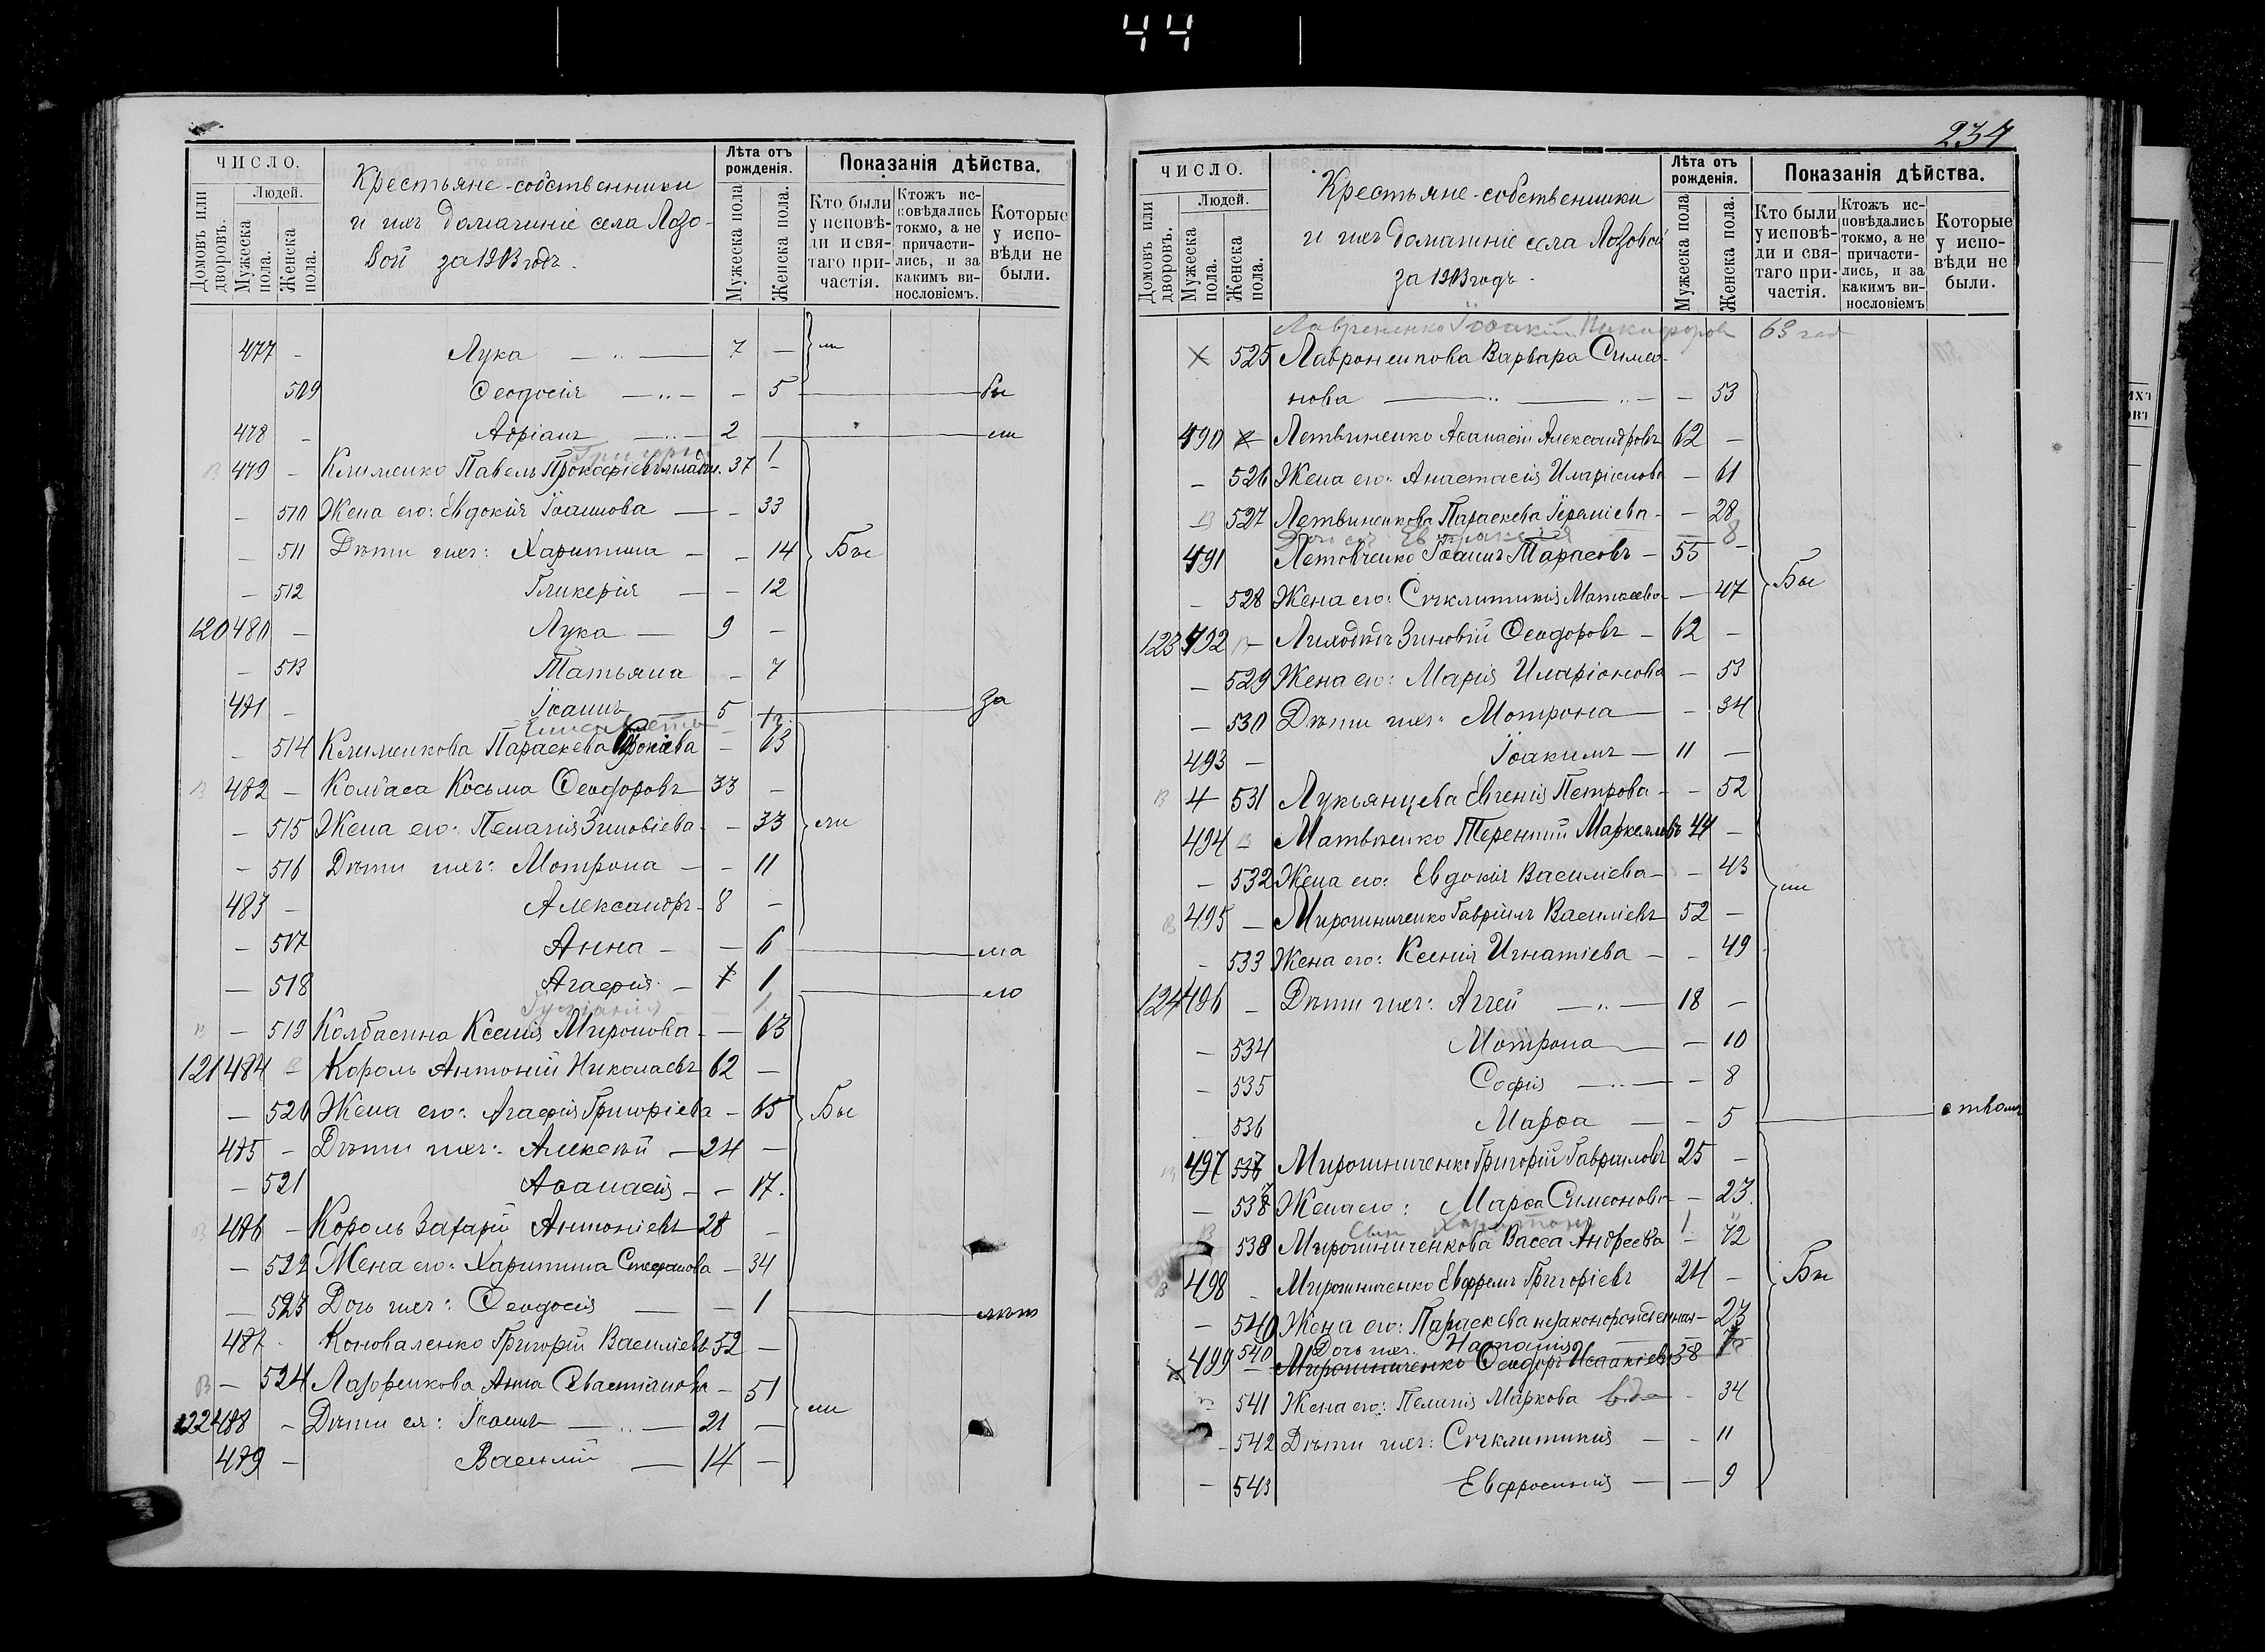 44
ЧИСЛО.
Домовъ или дворовъ.
Людей.
Мужеска пола.
Женска пола.
Крестьяне-собственники
и ихъ домашніе села Лозо-
вой за 1903 годъ.
Лѣта отъ рожденія.
Мужеска пола
Женска пола.
Показанія дѣйства.
Кто были у исповѣ-ди и свя-таго при-частія.
Ктожъ ис-повѣдались токмо, а не причасти-лись, и за какимъ ви-нословіемъ.
Которые у испо-вѣди не были.
477 - Лука — 7 — ли
509 Ѳеодосія — - 5 бы
478 - Адріанъ — 2 — ли
Григорій 1
479 - Клименко Павелъ Прокофіевъ младш. 37 -
- 510 Жена его: Евдокія Іоаннова — - 33
- 511 Дѣти ихъ: Харитина - - 14 Бы
- 512 Гликерія - - 12
120 480 - Лука — 9 -
- 513 Татьяна - 7
481 - Іоаннъ — 5 - за
Елисавета
- 514 Клименкова Параскева - 63
В 482 - Колбаса Косьма Ѳеодоровъ 33 -
- 515 Жена его: Пелагія Зиновіева - 33 ли
- 516 Дѣти ихъ: Мотрона - - 11
483 - Александръ - 8 -
- 517 Анна - - 6 ма
- 518 Агафія - 1 ло
1
В - 519 Колбасина Ксенія Миронова - - 63
121 484 - Король Антоній Николаевъ 62 -
- 520 Жена его: Агафія Григоріева - 65 Бы
485 - Дѣти ихъ: Алексѣй - 24 -
- 521 Аѳанасія - - 17.
В 486 - Король Захарій Антоніевъ 28 -
- 522 Жена его: Харитина Стефанова - 34
- 523 Дочь ихъ: Ѳеодосія — - 1 лѣт
487 - Коноваленко Григорій Василіевъ 52 -
В - 524 Лазоренкова Анна Севастіанова - 51
122 488 - Дѣти ея: Іоаннъ — 21 - ли
489 - Василій — 14 -
234
ЧИСЛО.
Домовъ или дворовъ.
Людей.
Мужеска пола.
Женска пола.
Крестьяне-собственники
и ихъ домашніе села Лозовой
за 1903 годъ.
Лѣта отъ рожденія.
Мужеска пола
Женска пола.
Показанія дѣйства.
Кто были у исповѣ-ди и свя-таго при-частія.
Ктожъ ис-повѣдались токмо, а не причасти-лись, и за какимъ ви-нословіемъ
Которые у испо-вѣди не были.
Лавроненко Іоакім Никифоров 63 год
× 525 Лавроненкова Варвара Симео-
нова — - 53
490 × Летвиненко Аѳанасій Александровъ 62 -
- 526 Жена его: Анастасія Иларіонова - 61
В 527 Летвиненкова Параскева Іереміева - - 28
Дочь ея Евпраксія 8
491 Летовченко Іоаннъ Тарасовъ - 55 -
- 528 Жена его: Сѵнклитикія Матѳеева - 47 Бы
123 492 - Лиходѣдъ Зиновій Ѳеодоровъ - 62 -
- 529 Жена его: Марія Иларіонова - 53
- 530 Дѣти ихъ: Мотрона — - 34
493 - Іоакимъ - 11 -
В 531 Лукьянцева Евгенія Петрова - - 52
494 - Матвѣенко Терентій Маркелловъ 44 -
- 532 Жена его: Евдокія Василіева - - 43 ли
В 495 - Мирошниченко Гавріилъ Василіевъ 52 -
- 533 Жена его: Ксенія Игнатіева - - 49
124 496 - Дѣти ихъ: Аггей — 18 -
- 534 Мотрона — - 10
- 535 Софія — - 8
536 Марѳа — - 5 отвомъ
497 537 Мирошниченко Григорій Гавріиловъ 25 -
- 538 Жена его: Марѳа Симеонова - 23
Сынъ Харитонъ 1
538 Мирошниченкова Васса Андреева - 72
В 498 - Мирошниченко Евфремъ Григоріевъ 24 - Бы
- 540 Жена его: Параскева незаконорожденная - 23
540 Дочь ихъ: Наталія
× 499 - Мирошниченко Ѳеодоръ Исаакіевъ 38
541 Жена его: Пелагія Маркова вдо - 34
- 542 Дѣти ихъ: Сѵнклитикія - - 11
- 543 Евфросинія — - 9